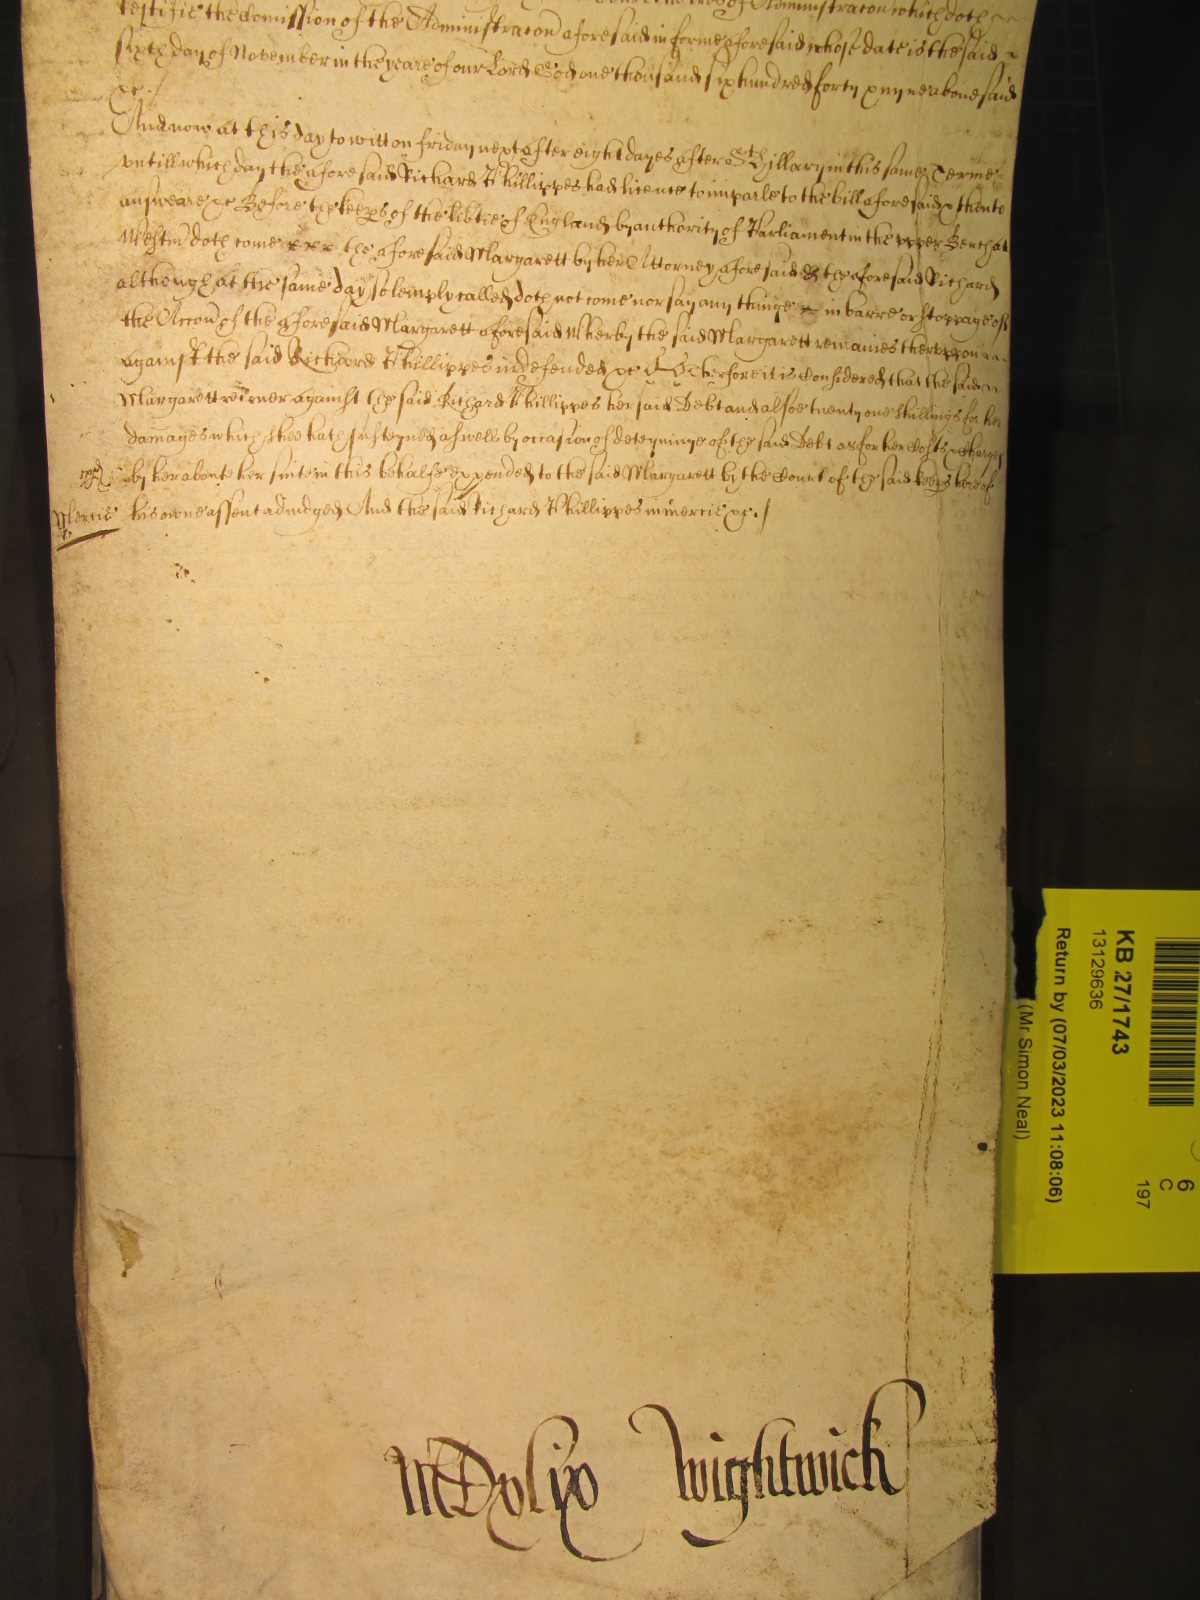 testifie the Comission of the Administracon aforesaid in forme aforesaid whose date is the said
sixth day of November in the yeare of our Lord God one thousand six hundred forty & nyne abovesaid
&c./
And now at this day to witt on friday next after eight dayes after St Hillary in this same Terme
untill which day the aforesaid Richard Phillippes had licence to imparle to the bill aforesaid & thento
answeare &c Before the keeps of the libtie of England by authority of Parliament in the upper Bench at
Westm doth come the aforesaid Margarett by her Attorney aforesaid & the aforesaid Richard
although at the same day solemply called doth not come nor say any thinge in barre or stoppage of
the Accon of the aforesaid Margarett aforesaid Wherby the said Margarett remaines theruppon
against the said Richard Phillippes indefended &c Therfore it is Considered that the said
Margarett recover against the said Richard Phillippes her said Debt and alsoe twenty one shillings for her
damages which shee hath susteyned aswell by occasion of deteyninge of the said Debt as for her Costs & Charges
by her aboute her suite in this behalfe expended to the said Margarett by the Court of the said keeps here of
Mercie his owne assent adiudged And the said Richard Phillippes in mercie &c./
MDxlix Wightwick
KB 27/1743
13129636
Return by (07/03/2023 11:08:06)
(Mr Simon Neal)
6
C
197